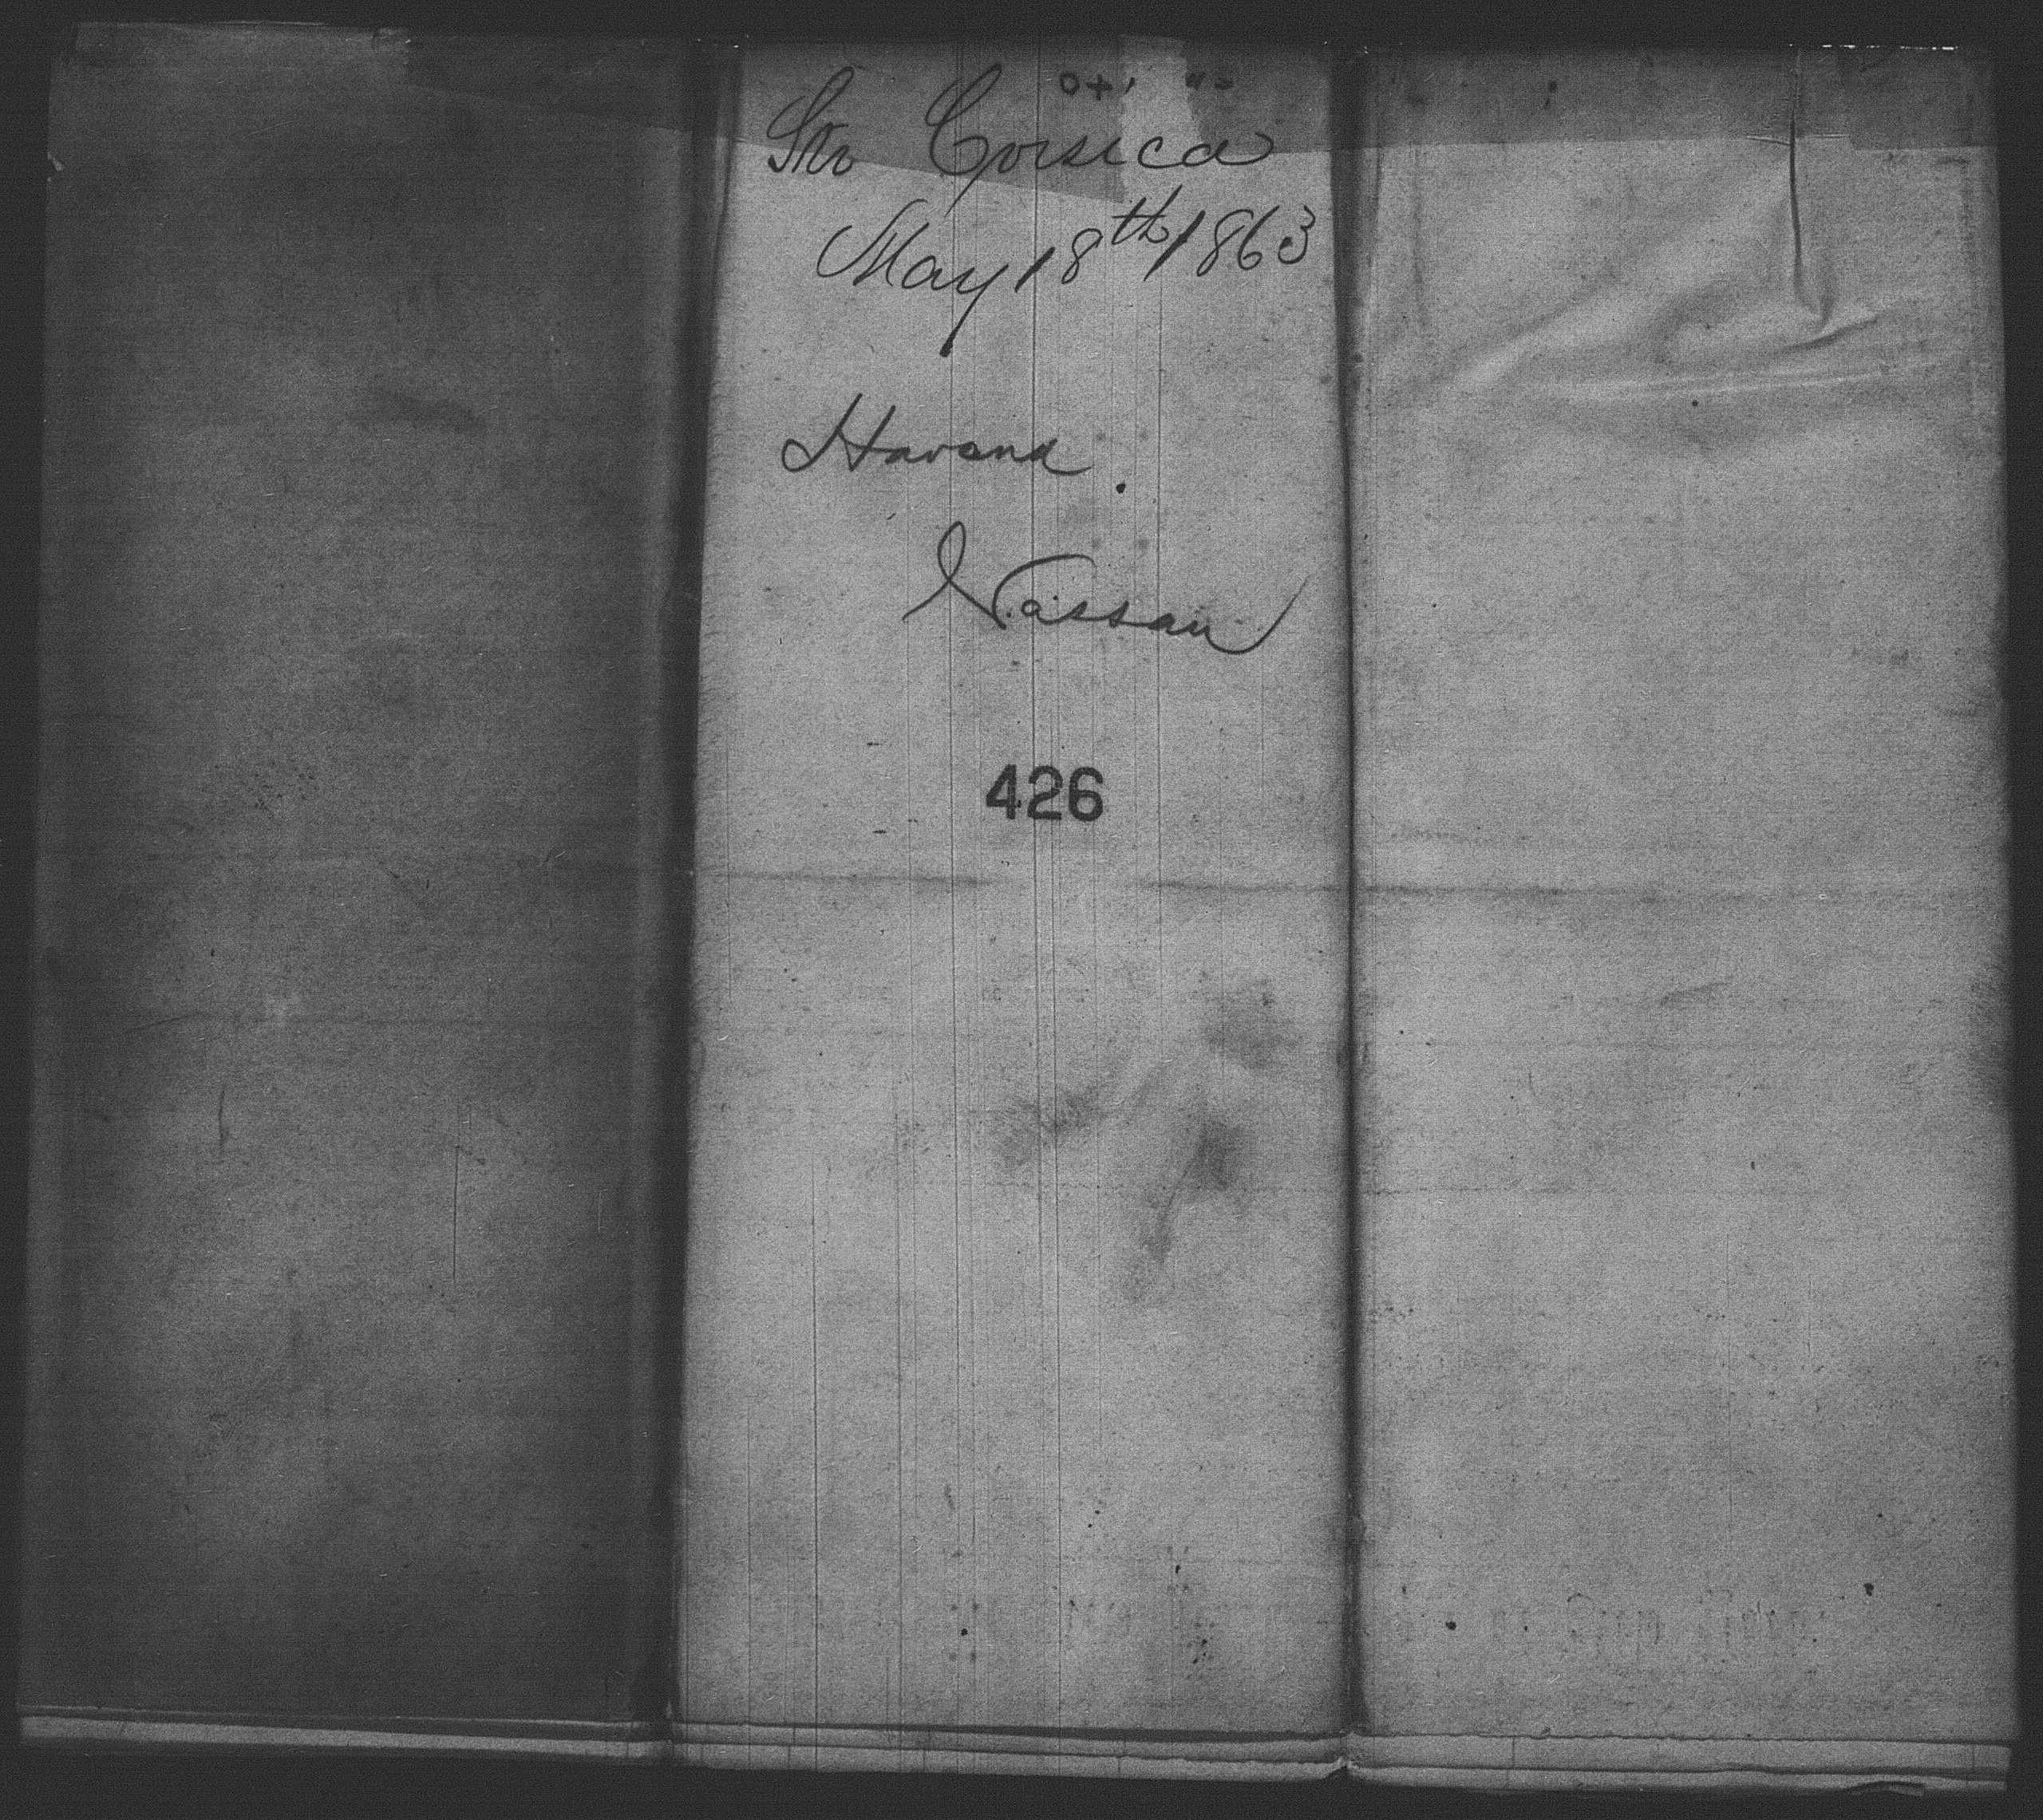 Str Corsica
May 18th 1863
Havana.
Nassau
426